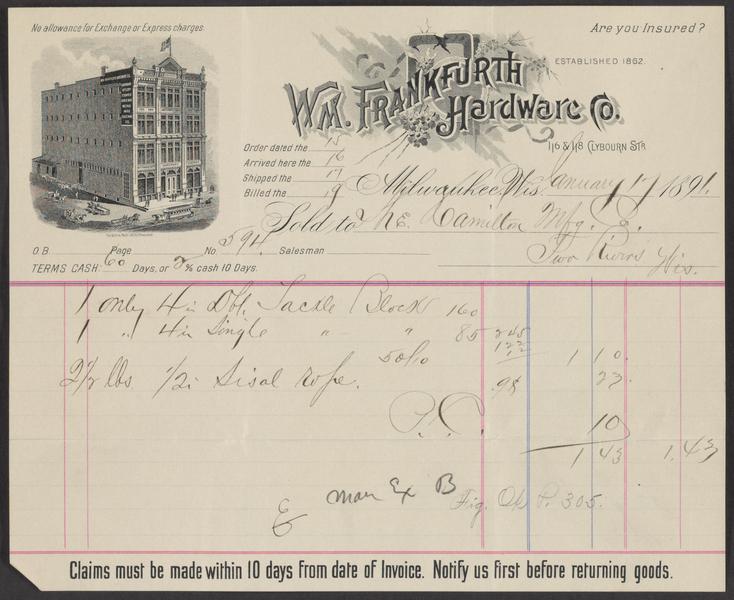 No allowance for Exchange or Express charges.
Are you Insured?
ESTABLISHED 1862.
Wm. Frankfurth
Hardware Co.
116 & 118 Clybourn Str
Order dated the 15
Arrived here the 16
Shipped the 17
Billed the 19
Milwaukee, Wis. January 17 1891.
Sold to H.E. Hamilton Mfg. Co.
Two Rivers Wis.
O.B. Page No. 594 Salesman
TERMS CASH: 60 Days, or 2 % cash 10 Days.
1 only 4 in Dbl. Tackle Block 160
1 " 4 in Single " " 85 245
50 10 1 10.
2 1/2 lbs 1/2 in Sisal rope. 23.
10
1 43 1.43
Man Ex B
Fig. Ok P. 305.
Claims must be made within 10 days from date of Invoice. Notify us first before returning goods.